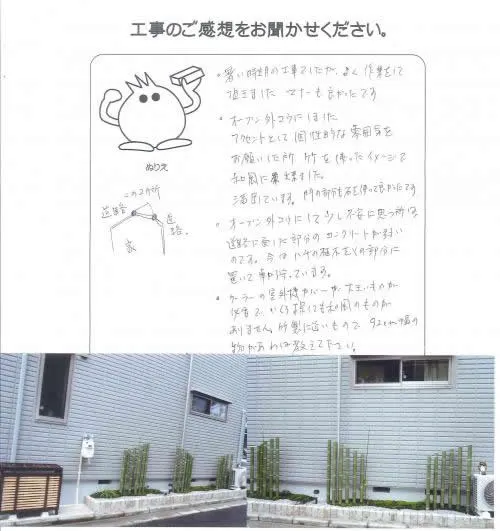 工事のご感想をお聞かせください。
・暑い時期の工事でしたが、よく作業をして
頂きました マナーも良かったです
ぬりえ
・オープン外コウにしました
アクセントとして個性的な雰囲気を
お願いした所 竹を使ったイメージで
和風に
満足しています。門の部分も石を使って良かったです
この2ヶ所
道路
道路。
家
・オープン外コウにして少し不安に思う所は、
道路に面した部分のコンクリートが弱い
のです。今はハチの植木をその部分に
置いて
・クーラーの室外機カバーが大きいものが
必要で、いくら探しても和風のものが
ありません。竹製に近いもので 92cm幅の
物があれば教えて下さい。